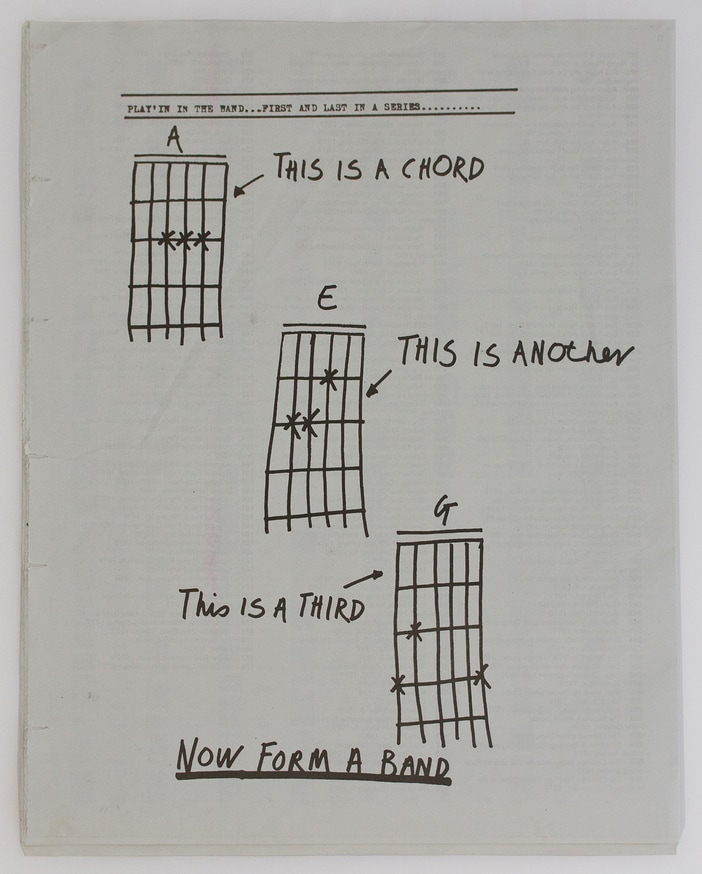 PLAY'IN IN THE BAND...FIRST AND LAST IN A SERIES..........
A
THIS IS A CHORD
E
THIS IS ANOther
G
This IS A THIRD
NOW FORM A BAND